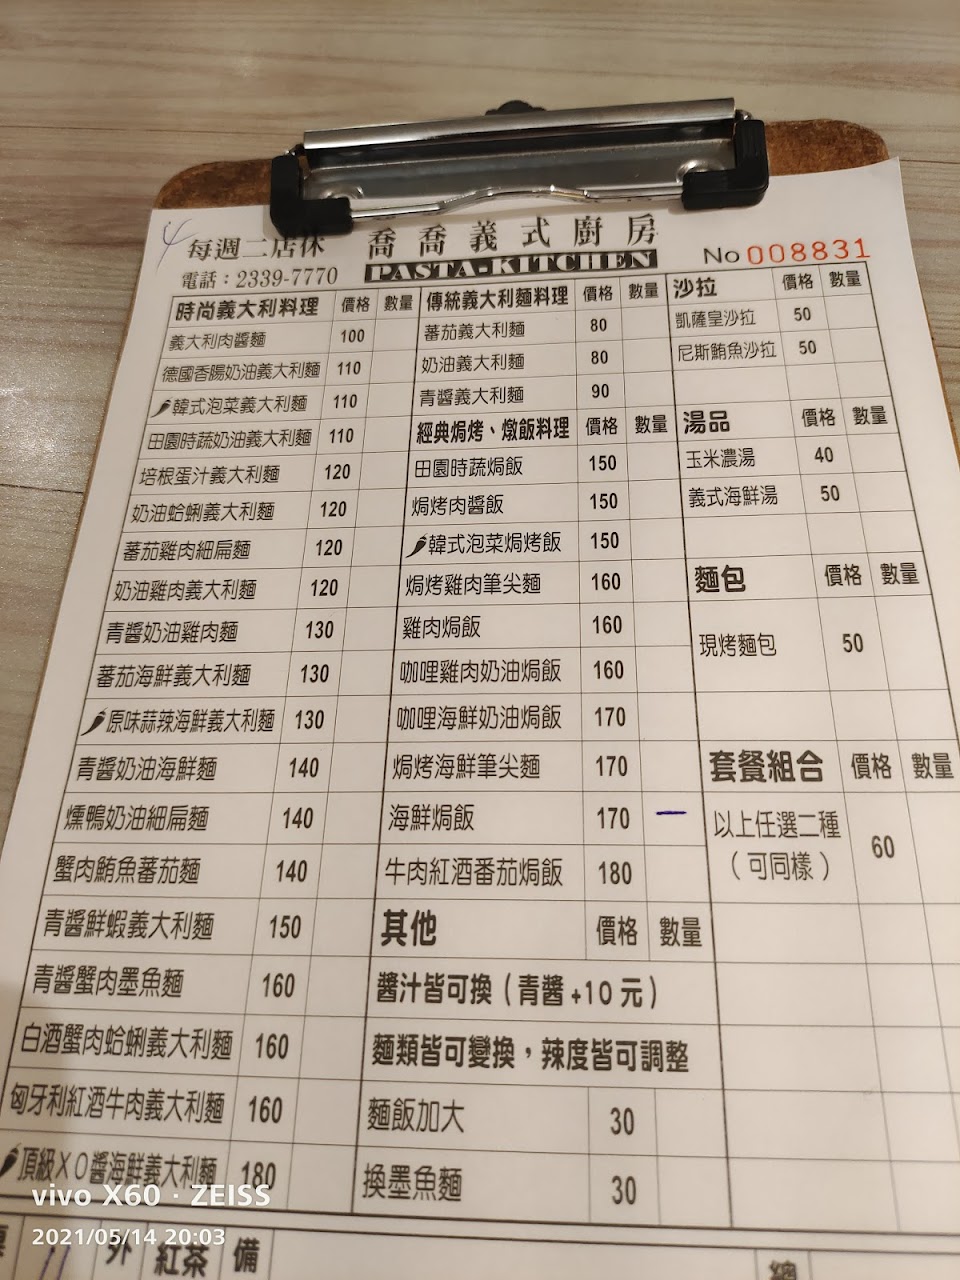 每週二店休 喬喬義式廚房
電話：2339-7770 PASTA-KITCHEN No 008831
時尚義大利料理 價格 數量
義大利肉醬麵 100
德國香腸奶油義大利麵 110
韓式泡菜義大利麵 110
田園時蔬奶油義大利麵 110
培根蛋汁義大利麵 120
奶油蛤蜊義大利麵 120
蕃茄雞肉細扁麵 120
奶油雞肉義大利麵 120
青醬奶油雞肉麵 130
蕃茄海鮮義大利麵 130
原味蒜辣海鮮義大利麵 130
青醬奶油海鮮麵 140
燻鴨奶油細扁麵 140
蟹肉鮪魚蕃茄麵 140
青醬鮮蝦義大利麵 150
青醬蟹肉墨魚麵 160
白酒蟹肉蛤蜊義大利麵 160
匈牙利紅酒牛肉義大利麵 160
頂級XO醬海鮮義大利麵 180
傳統義大利麵料理 價格 數量
蕃茄義大利麵 80
奶油義大利麵 80
青醬義大利麵 90
經典焗烤、燉飯料理 價格 數量
田園時蔬焗飯 150
焗烤肉醬飯 150
韓式泡菜焗烤飯 150
焗烤雞肉筆尖麵 160
雞肉焗飯 160
咖哩雞肉奶油焗飯 160
咖哩海鮮奶油焗飯 170
焗烤海鮮筆尖麵 170
海鮮焗飯 170 一
牛肉紅酒番茄焗飯 180
其他 價格 數量
醬汁皆可換（青醬+10元）
麵類皆可變換，辣度皆可調整
麵飯加大 30
換墨魚麵 30
沙拉 價格 數量
凱薩皇沙拉 50
尼斯鮪魚沙拉 50
湯品 價格 數量
玉米濃湯 40
義式海鮮湯 50
麵包 價格 數量
現烤麵包 50
套餐組合 價格 數量
以上任選二種
（可同樣） 60
外 紅茶 備
vivo X60 · ZEISS
2021/05/14 20:03